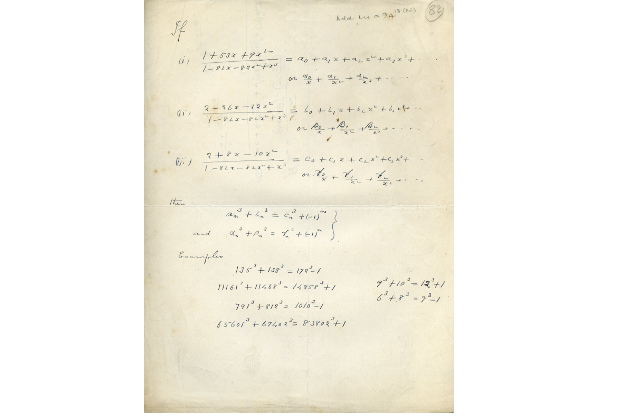 82
If
(i) (1 + 53x + 9x²)/(1 − 82x − 82x² + x³) = a₀ + a₁x + a₂x² + a₃x³ + ···
or α₀/x + α₁/x² + α₂/x³ + ···
(ii) (2 − 26x − 12x²)/(1 − 82x − 82x² + x³) = b₀ + b₁x + b₂x² + b₃x³ + ···
or β₀/x + β₁/x² + β₂/x³ + ···
(iii) (2 + 8x − 10x²)/(1 − 82x − 82x² + x³) = c₀ + c₁x + c₂x² + c₃x³ + ···
or γ₀/x + γ₁/x² + γ₂/x³ + ···
then
aₙ³ + bₙ³ = cₙ³ + (−1)ⁿ }
and αₙ³ + βₙ³ = γₙ³ + (−1)ⁿ }
Examples
135³ + 138³ = 172³ − 1
11161³ + 11468³ = 14258³ + 1
9³ + 10³ = 12³ + 1
791³ + 812³ = 1010³ − 1
6³ + 8³ = 9³ − 1
65601³ + 67402³ = 83802³ + 1